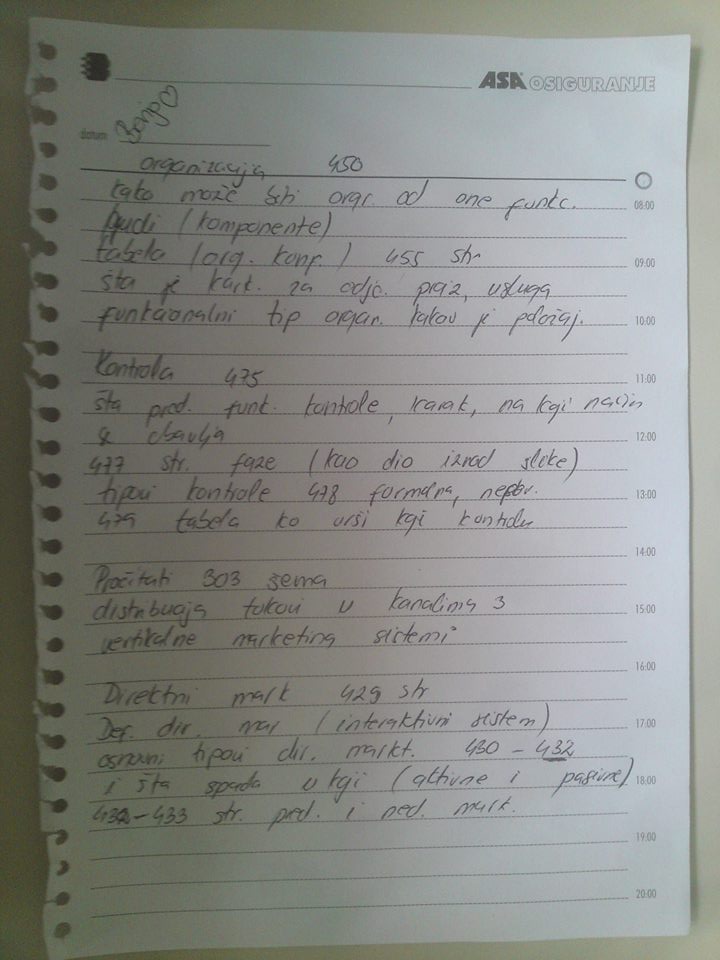 ASA OSIGURANJE
datum
organizacija 450
kako može biti orgr. od one funkc. 08:00
ljudi (komponente)
tabela (org. konp.) 455 str 09:00
šta je kark. za odjc. praz, usluga
funkcionalni tip organ. kakav je položaj. 10:00
Kontrola 475 11:00
šta pred. funk. kontrole, karak, na koji način
se obavlja 12:00
477 str. faze (kao dio iznad slike)
tipovi kontrole 478 formalna, nefor. 13:00
479 tabela ko vrši koji kontrolu
14:00
Pročitati 303 šema
distribucija tokovi u kanalima 3 15:00
vertikalne marketing sistemi
16:00
Direktni mark 429 str
Def. dir. mar (interaktivni sistem) 17:00
osnovni tipovi dir. markt. 430 - 432
i šta spada u koji (aktivne i pasivne) 18:00
432-433 str. pred. i ned. mark.
19:00
20:00